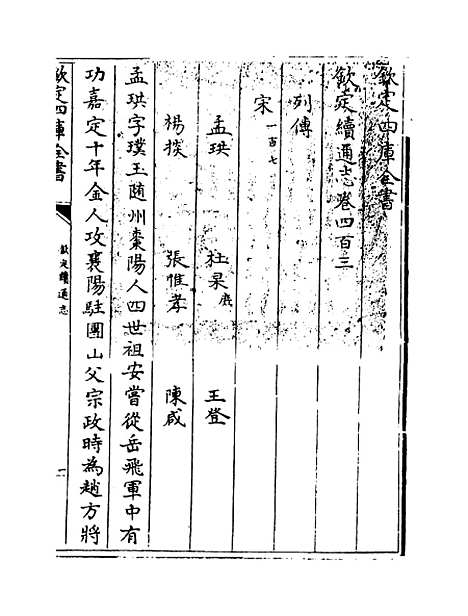 欽定四庫全書
欽定續通志卷四百三
列傳
宋一百七
孟珙 杜杲庶 王登
楊掞 張惟孝 陳咸
孟珙字璞玉隨州棗陽人四世祖安嘗從岳飛軍中有
功嘉定十年金人攻襄陽駐團山父宗政時為趙方將
欽定四庫全書
欽定續通志
一